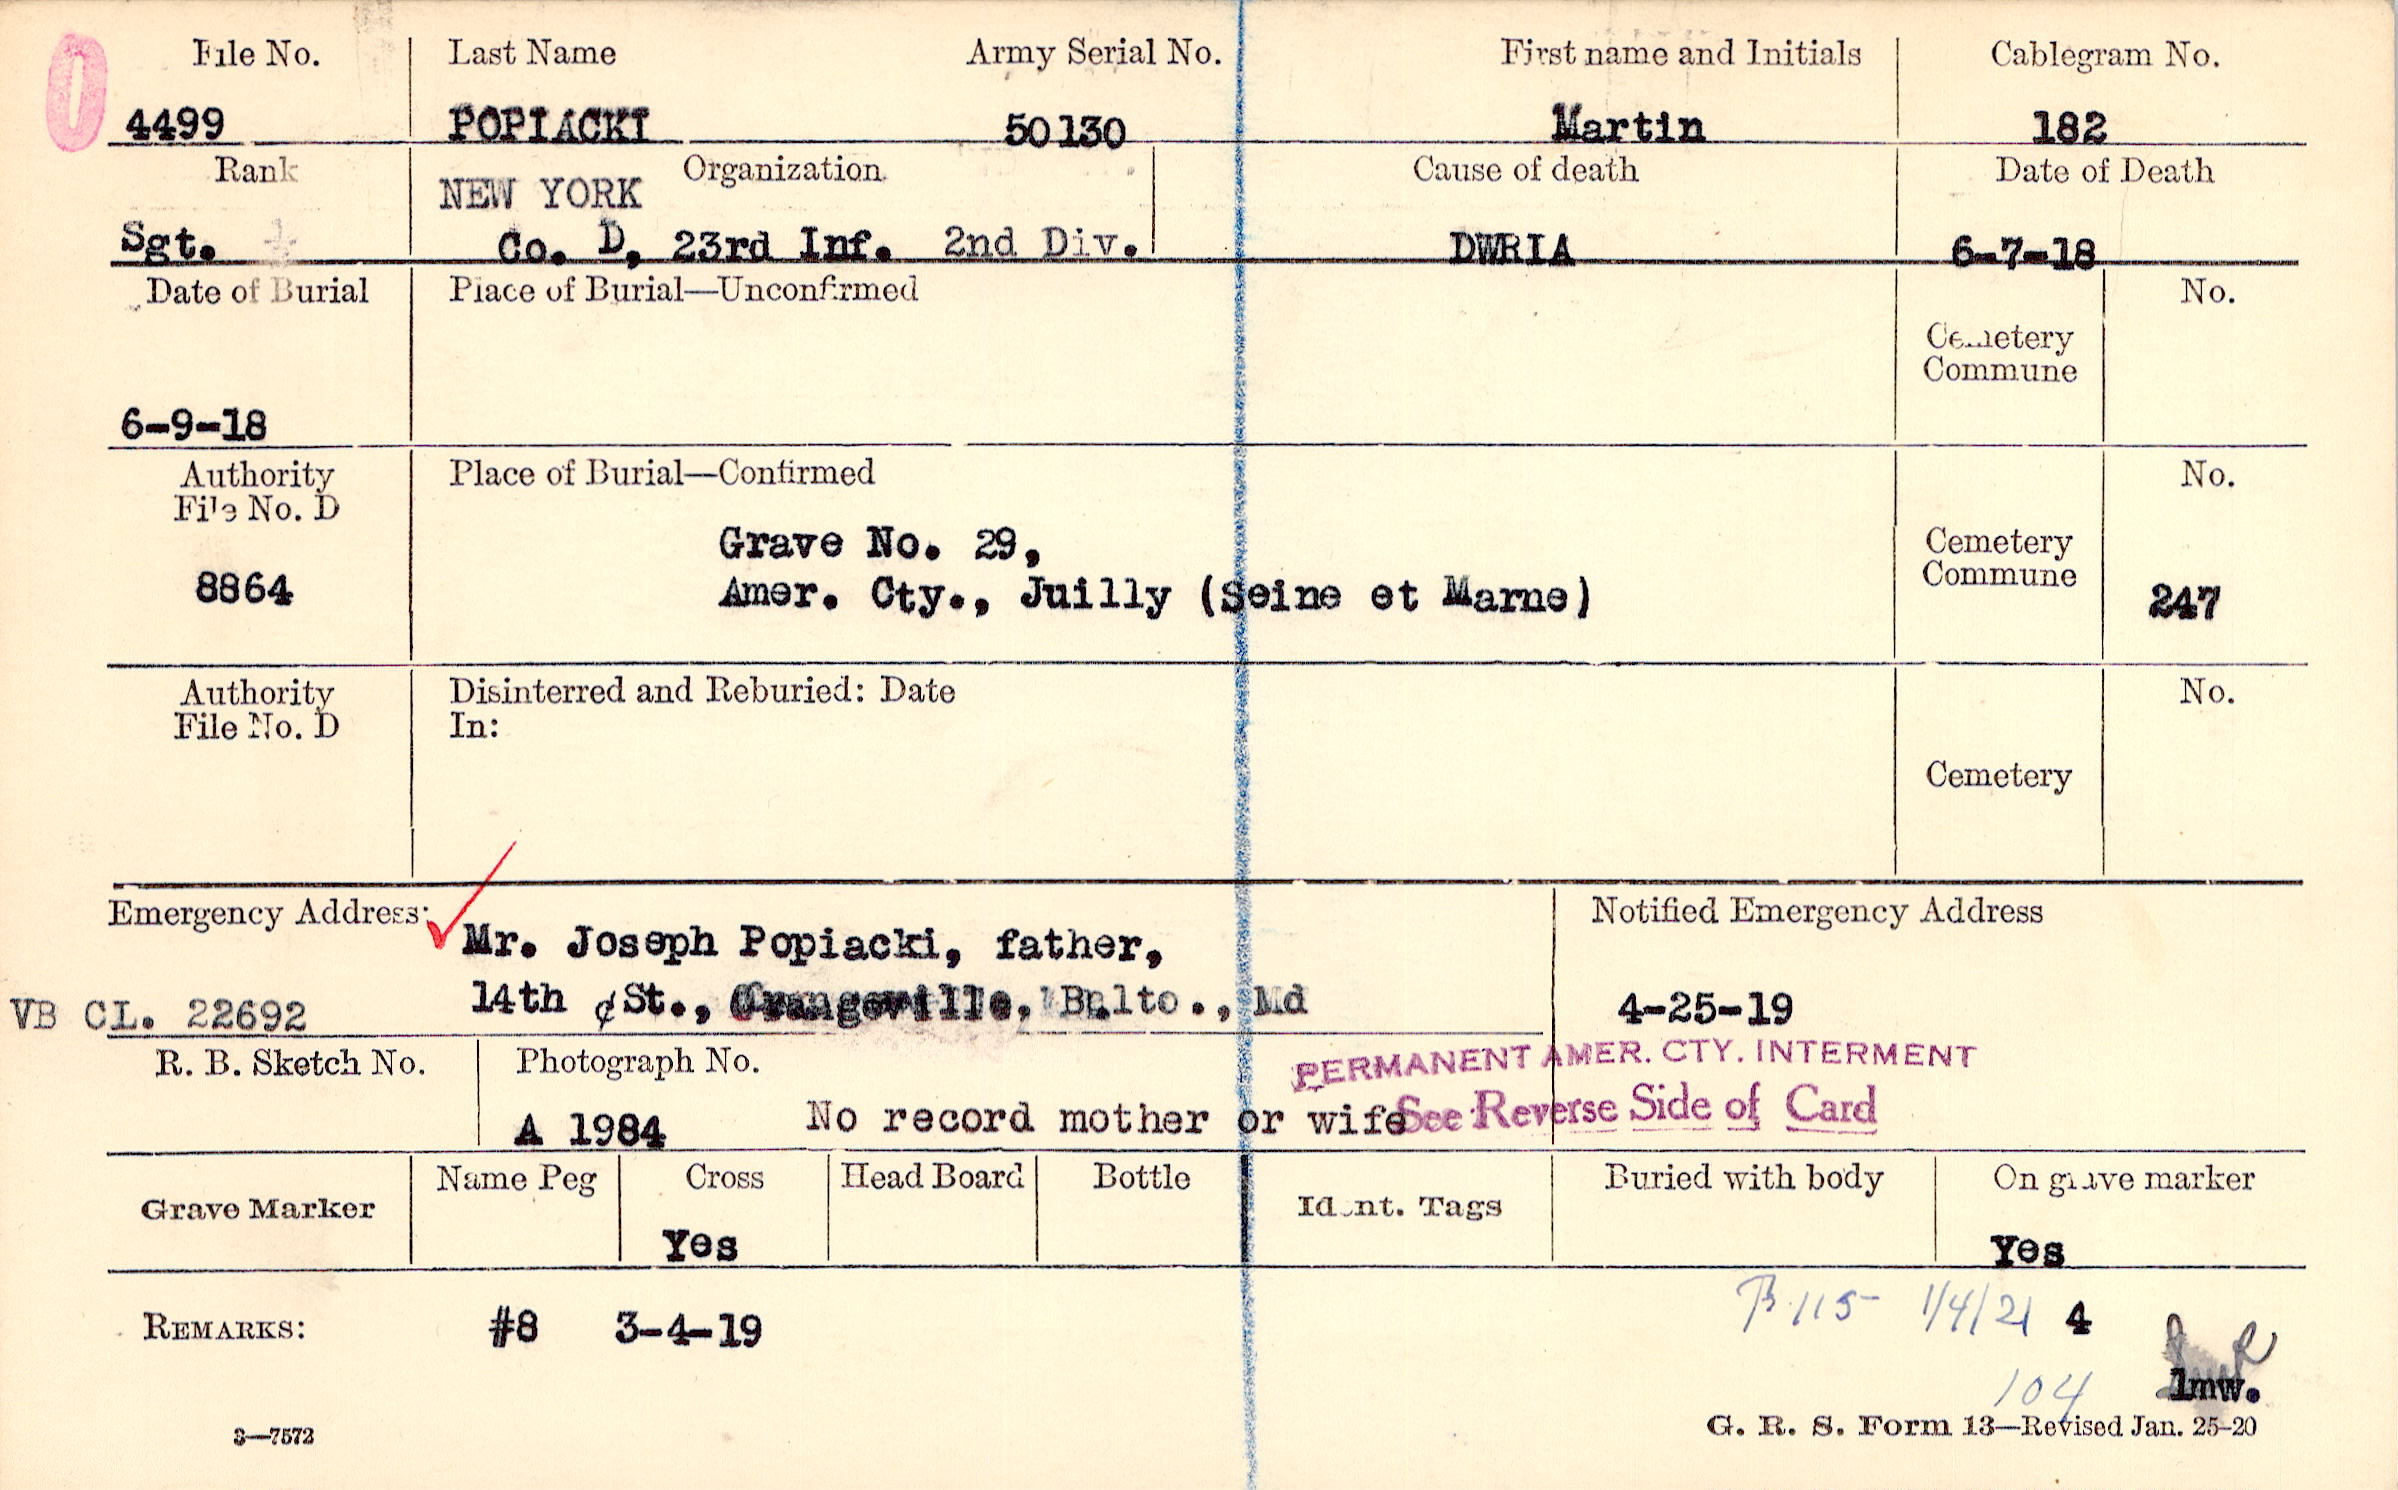 File No. Last Name Army Serial No. First name and Initials Cablegram No.
4499 POPIACKI 50130 Martin 182
Rank Organization Cause of death Date of Death
NEW YORK
Sgt. Co. D, 23rd Inf. 2nd Div. DWRIA 6-7-18
Date of Burial Place of Burial—Unconfirmed No.
Cemetery
Commune
6-9-18
Authority Place of Burial—Confirmed No.
File No. D
Grave No. 29, Cemetery
8864 Amer. Cty., Juilly (Seine et Marne) Commune 247
Authority Disinterred and Reburied: Date No.
File No. D In:
Cemetery
Emergency Address: Notified Emergency Address
Mr. Joseph Popiacki, father,
14th St., Orangeville, Balto., Md 4-25-19
VB CL. 22692
R. B. Sketch No. Photograph No. PERMANENT AMER. CTY. INTERMENT
A 1984 No record mother or wife See Reverse Side of Card
Grave Marker Name Peg Cross Head Board Bottle Ident. Tags Buried with body On grave marker
Yes Yes
REMARKS: #8 3-4-19 115 1/4/21 4
104 lmw.
3—7572 G. R. S. Form 13—Revised Jan. 25-20